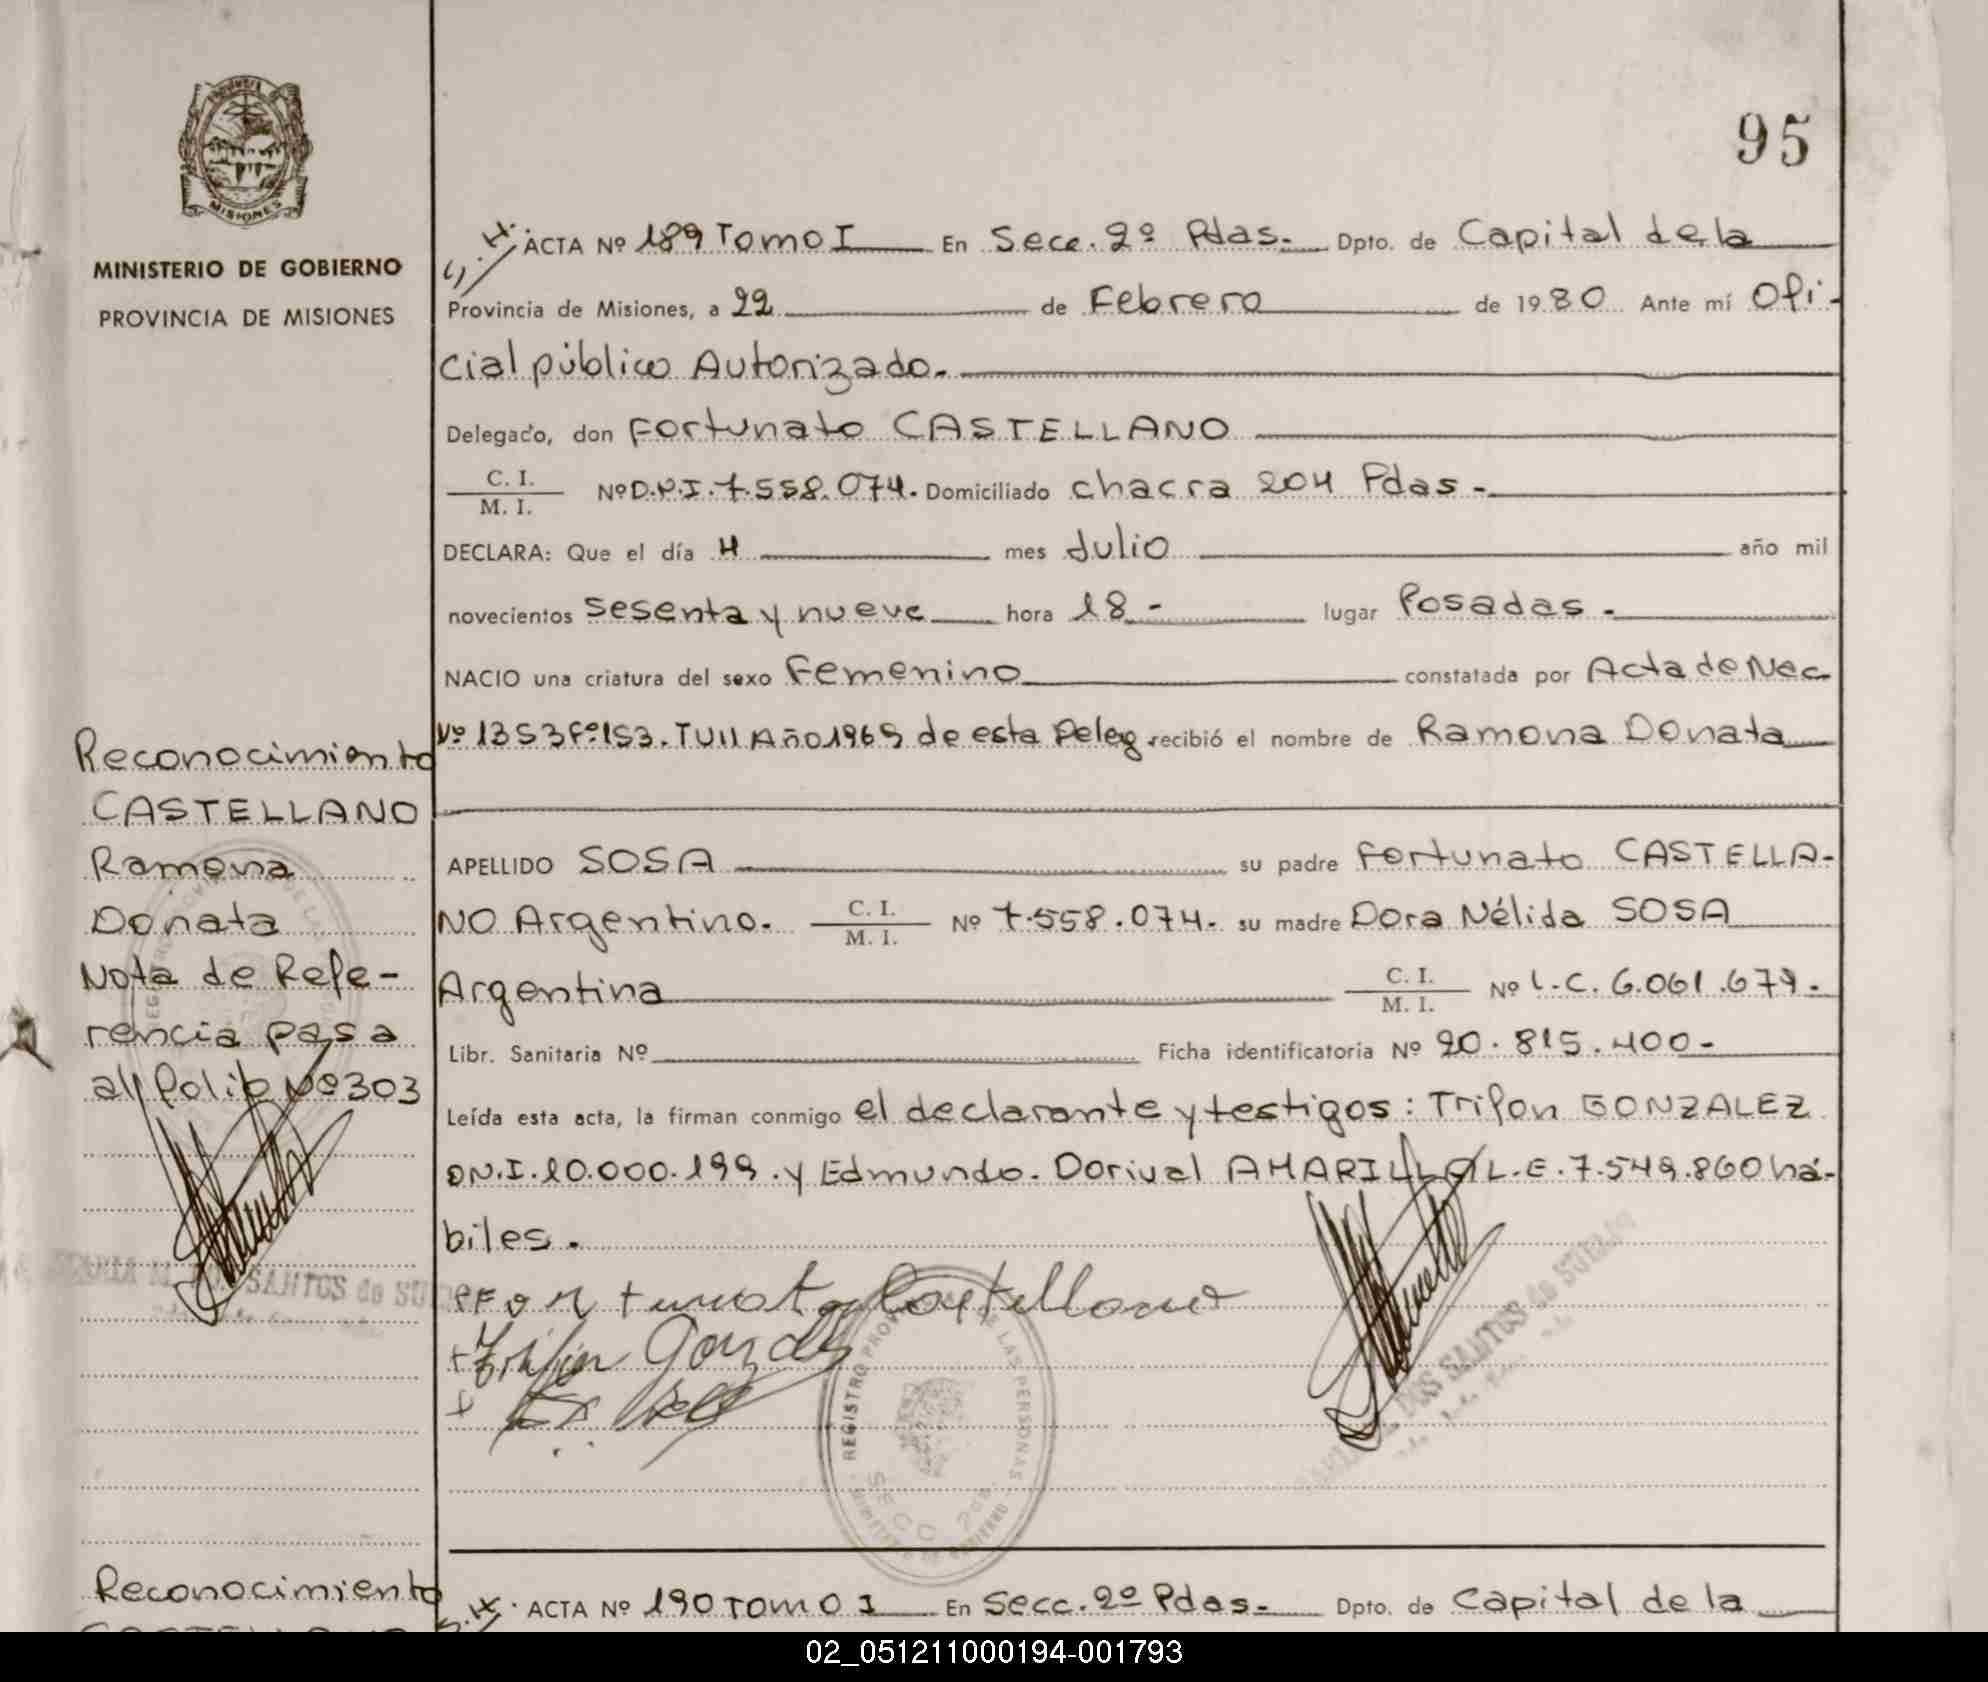 95
MISIONES
MINISTERIO DE GOBIERNO
PROVINCIA DE MISIONES
ACTA Nº 189 Tomo I En Secc. 2º Pdas. Dpto. de Capital de la
Provincia de Misiones, a 22 de Febrero de 1980 Ante mí Ofi-
cial público Autorizado.
Delegado, don Fortunato CASTELLANO
C. I.
M. I. Nº D.N.I. 7.558.074. Domiciliado chacra 204 Pdas -
DECLARA: Que el día 4 mes Julio año mil
novecientos sesenta y nueve hora 18 - lugar Posadas.
NACIO una criatura del sexo Femenino constatada por Acta de Nac
Nº 1353 Fº 153. TVII Año 1969 de esta Deleg recibió el nombre de Ramona Donata
APELLIDO SOSA su padre Fortunato CASTELLA-
NO Argentino. C. I.
M. I. Nº 7.558.074. su madre Dora Nélida SOSA
Argentina C. I.
M. I. Nº L.C. 6.061.679.
Libr. Sanitaria Nº Ficha identificatoria Nº 20.815.400-
Leída esta acta, la firman conmigo el declarante y testigos: Trifon GONZALEZ
DN.I. 10.000.199. y Edmundo. Dorival AMARILLA L.E. 7.549.860 há-
biles.
Fortunato Castellano
Trifon Gonzalez
REGISTRO PROVINCIAL DE LAS PERSONAS
MINISTERIO DE GOBIERNO
SECC 2da
DOS SANTOS de SUELD
Reconocimiento
CASTELLANO
Ramona
Donata
Nota de Refe-
rencia pasa
al folio Nº 303
SANTOS de
Reconocimiento
CASTELLANO
ACTA Nº 190 Tomo I En Secc. 2º Pdas. Dpto. de Capital de la
02_051211000194-001793